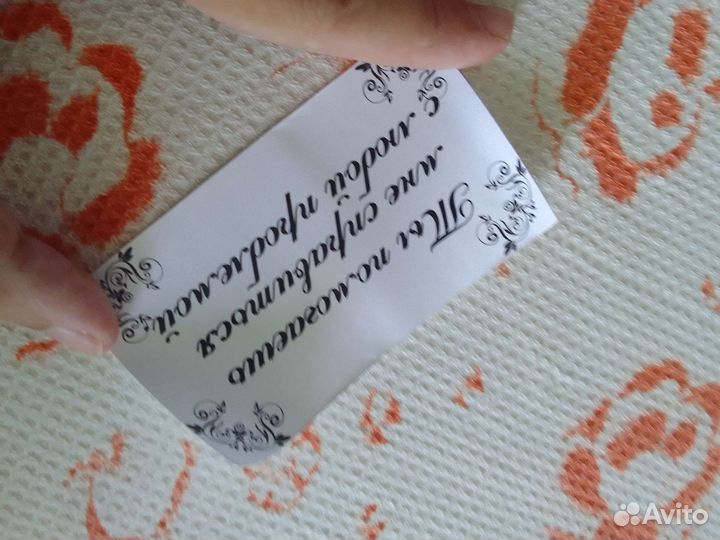 Ты помогаешь
мне справиться
с любой проблемой
Avito